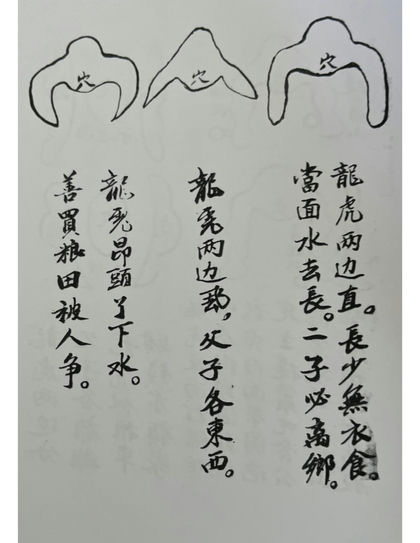 穴
穴
穴
龍虎两边直。長少無衣食。
當面水去長。二子必离鄉。
龍虎两边，父子各東西。
龍虎昂頭下水。
善買粮田被人争。